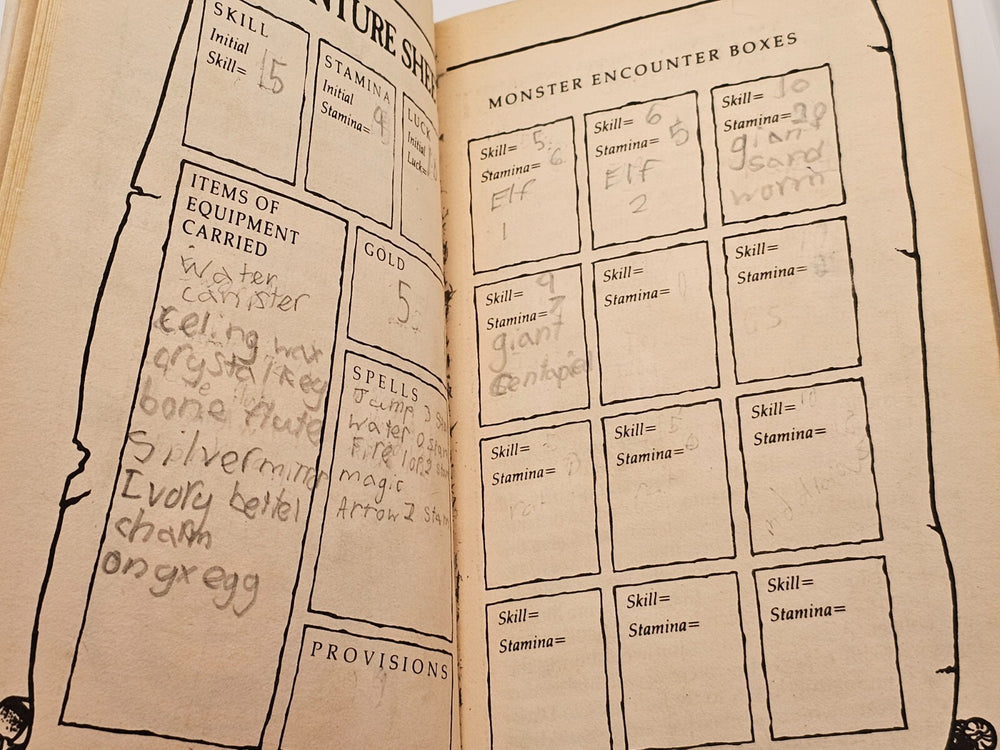 NTURE SHE
SKILL
Initial
Skill= 15
STAMINA
Initial
Stamina= 9
LUCK
Initial
Luck=
ITEMS OF
EQUIPMENT
CARRIED
Water
canister
Celing wax
crystal key
bone flute
Silver mirror
Ivory bettel
charm
onyx egg
GOLD
5
SPELLS
Jump 3 Sta
Water 0 stam
Fire 1 or 2 sta
magic
Arrow 2 Stam
PROVISIONS
MONSTER ENCOUNTER BOXES
Skill= 5
Stamina= 6
Elf
1
Skill= 6
Stamina= 5
Elf
2
Skill= 10
Stamina= 20
giant
sand
worm
Skill= 9
Stamina= 7
giant
Centapied
Skill=
Stamina=
Skill=
Stamina=
Skill=
Stamina=
Skill=
Stamina=
Skill=
Stamina=
Skill=
Stamina=
Skill=
Stamina=
Skill=
Stamina=